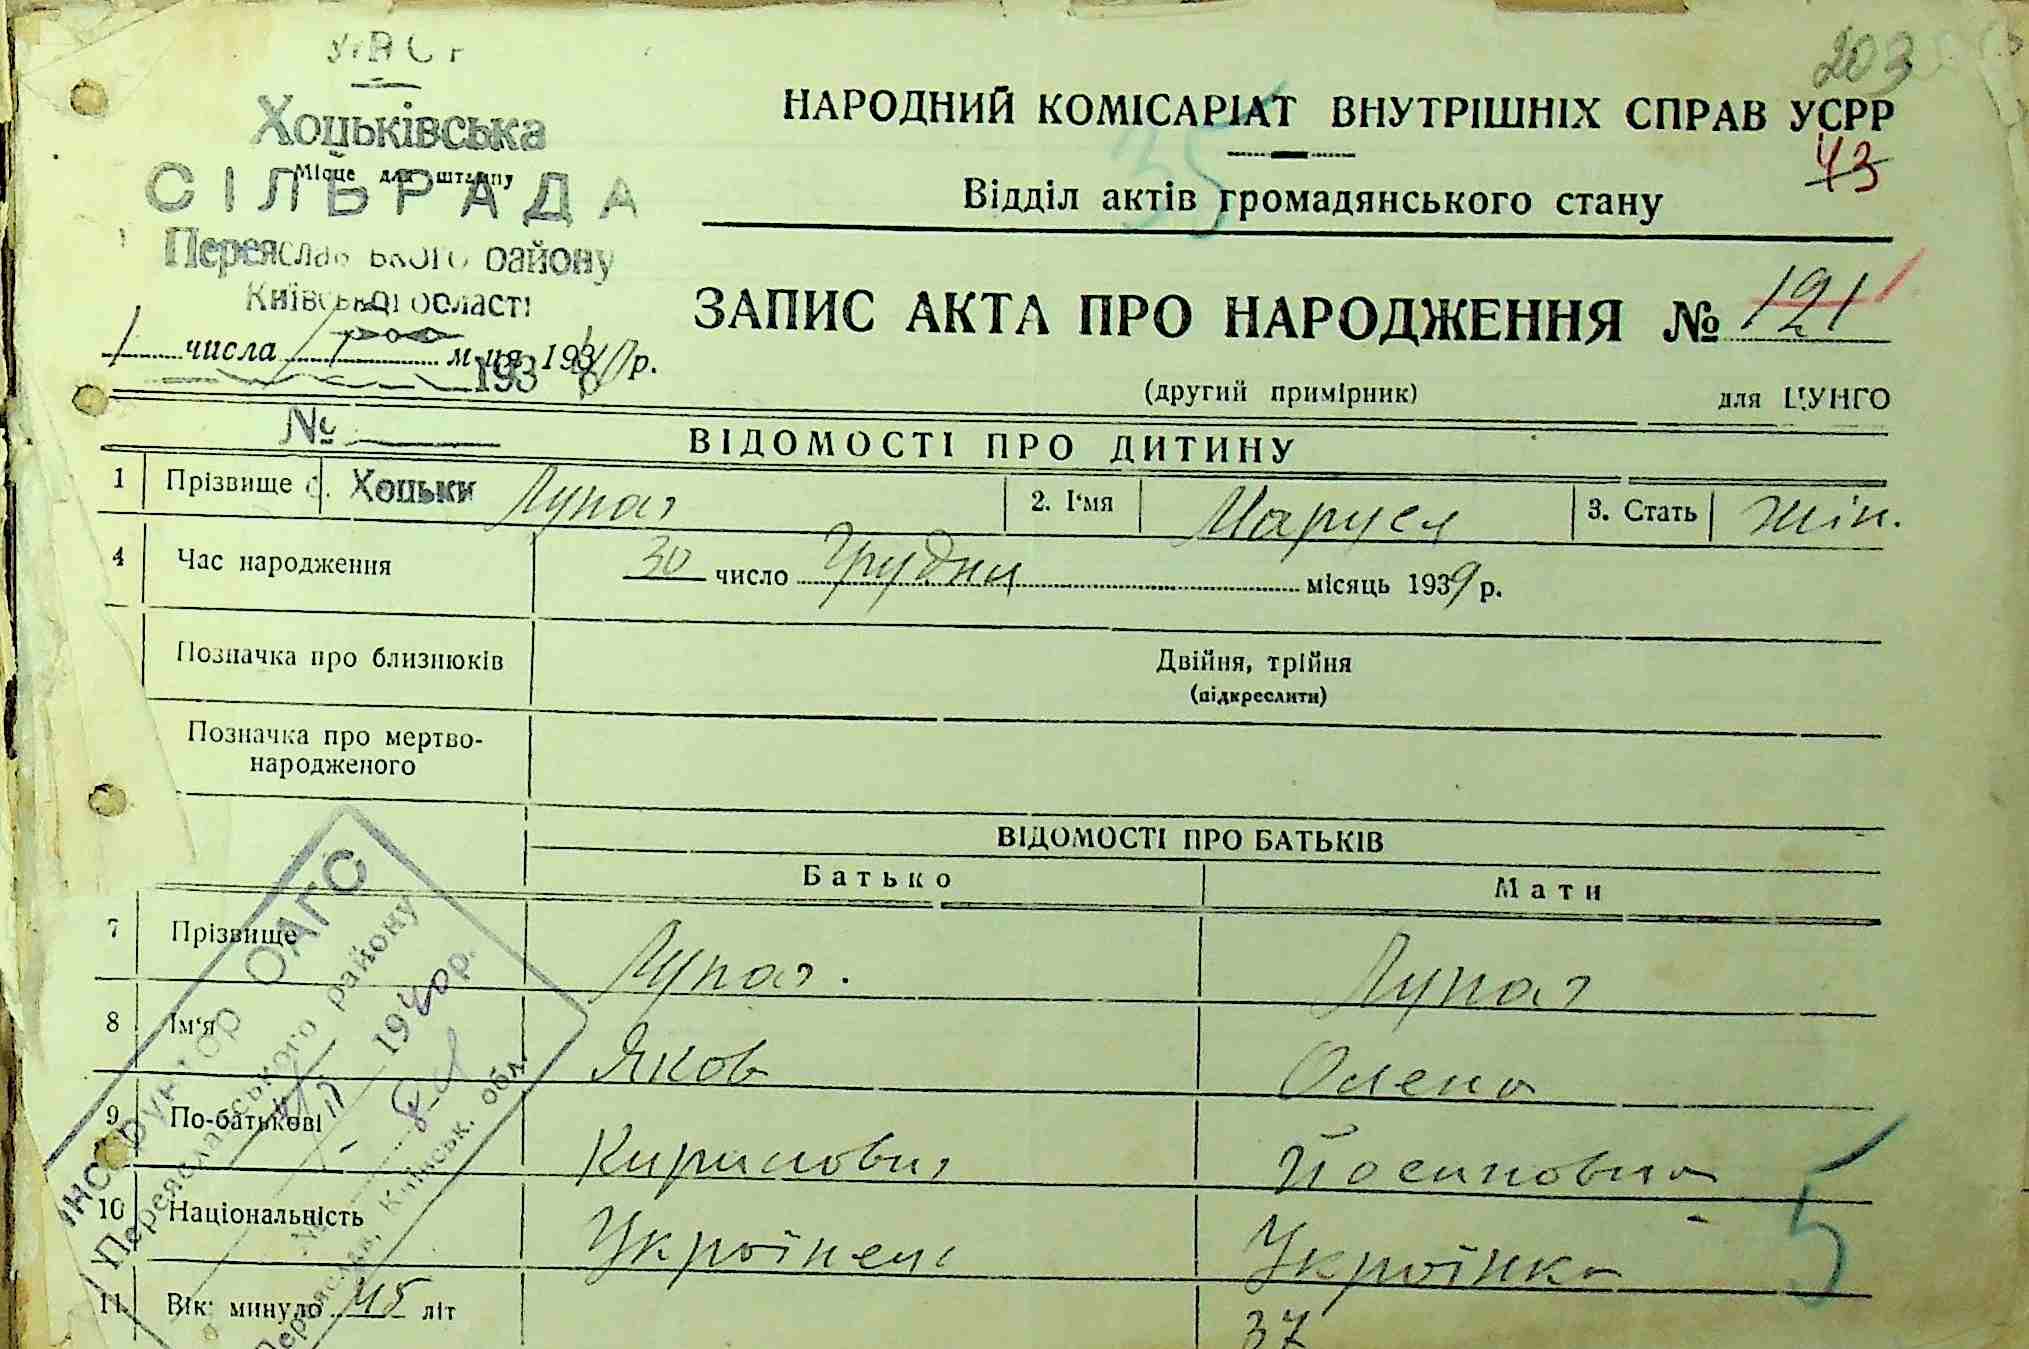 203
УРСР
Хоцьківська
НАРОДНИЙ КОМІСАРІАТ ВНУТРІШНІХ СПРАВ УСРР
35
43
Місце для штампу
СІЛЬРАДА
Відділ актів громадянського стану
Переяславського району
Київської області
ЗАПИС АКТА ПРО НАРОДЖЕННЯ № 121
1 числа 1 м-ця 1940 р.
193 р.
(другий примірник) для ЦУНГО
№
ВІДОМОСТІ ПРО ДИТИНУ
1 Прізвище с. Хоцьки Лупач 2. І'мя Маруся 3. Стать жін.
4 Час народження 30 число Грудня місяць 1939 р.
Позначка про близнюків Двійня, трійня
(підкреслити)
Позначка про мертво-
народженого
ВІДОМОСТІ ПРО БАТЬКІВ
Батько Мати
7 Прізвище Лупач. Лупач
8 Ім'я Яков Олена
9 По-батькові Кирилович Йосиповна
10 Національність Українець Українка
11 Вік: минуло 45 літ 37
5
Інструктор ОАГС
Переяславського району
1940 р.
№
Переяслав, Київськ. обл.